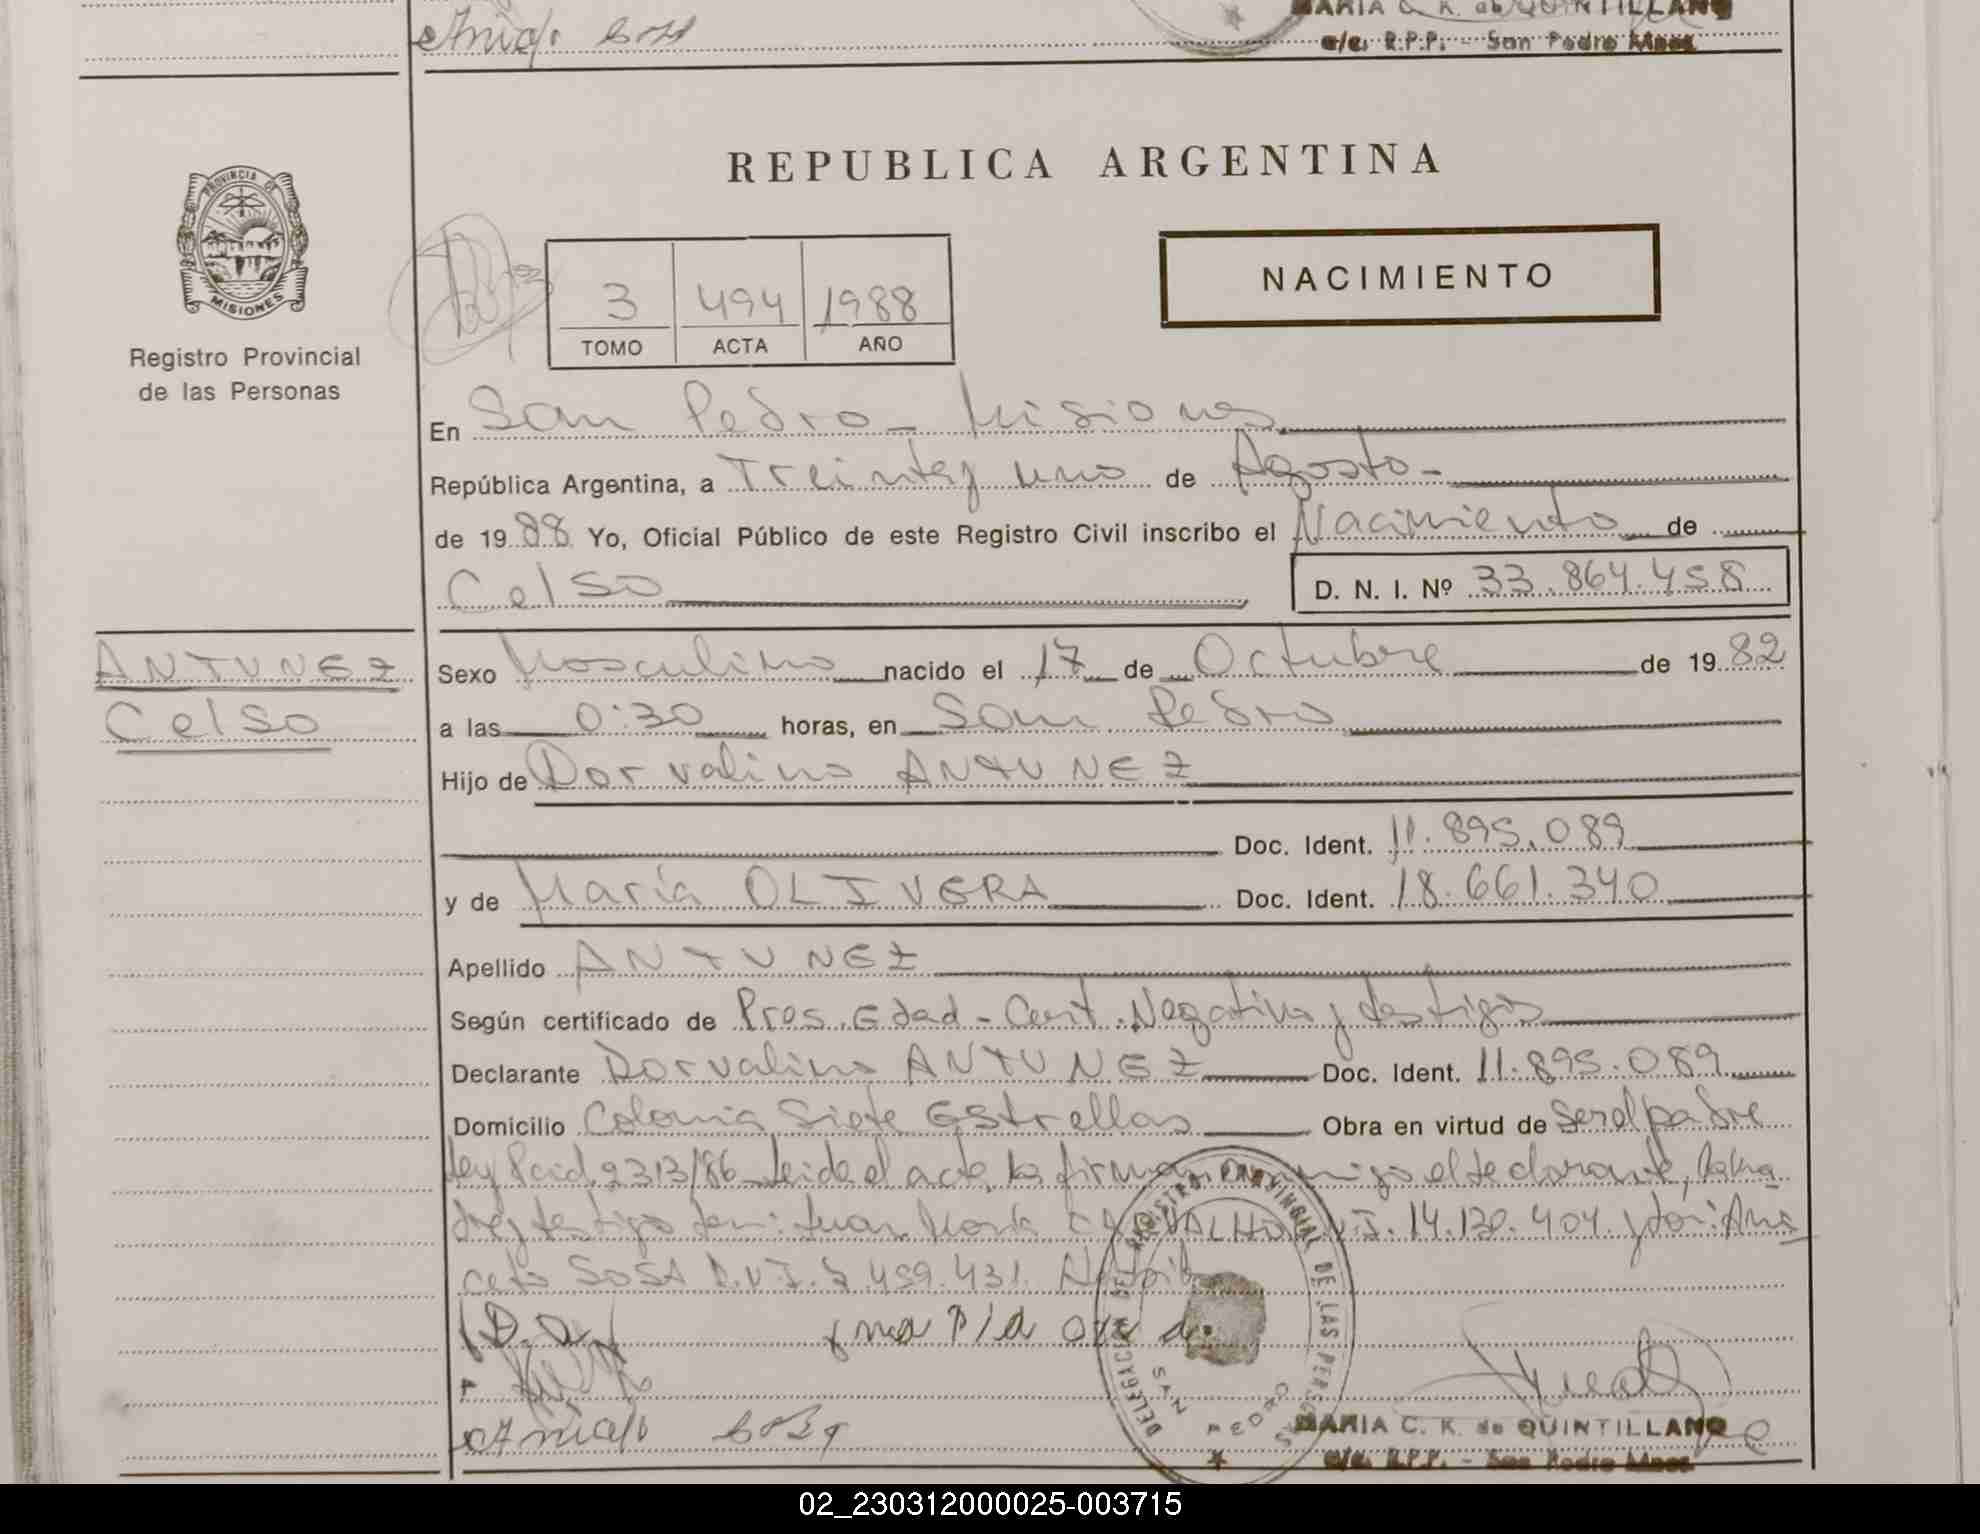 MARIA C. K. de QUINTILLANO
e/e. R.P.P. - San Pedro Mnes.
REPUBLICA ARGENTINA
PROVINCIA DE
MISIONES
Registro Provincial
de las Personas
3 494 1988
TOMO ACTA AÑO
NACIMIENTO
En San Pedro - Misiones
República Argentina, a Treinta y uno de Agosto -
de 19 88 Yo, Oficial Público de este Registro Civil inscribo el Nacimiento de
Celso D. N. I. Nº 33.864.458
ANTUNEZ
Celso
Sexo Masculino nacido el 17 de Octubre de 19 82
a las 0:30 horas, en San Pedro
Hijo de Dorvalino ANTUNEZ
Doc. Ident. 11.895.089
y de María OLIVERA Doc. Ident. 18.661.340
Apellido ANTUNEZ
Según certificado de Pres. Edad - Cert. Negativo y testigos
Declarante Dorvalino ANTUNEZ Doc. Ident. 11.895.089
Domicilio Colonia Siete Estrellas Obra en virtud de Ser el padre
Ley 2313/86 Leida el acta, la firman conmigo el declarante, la ma
dre y testigos don: Juan María CARVALHO D.N.I. 14.130.404. y don: Ani
ceto SOSA D.N.I. 7.459.431.
D. A.
DELEGACION DE REGISTRO PROVINCIAL DE LAS PERSONAS
SAN PEDRO
MARIA C. K. de QUINTILLANO
e/e. R.P.P. - San Pedro Mnes.
02_230312000025-003715